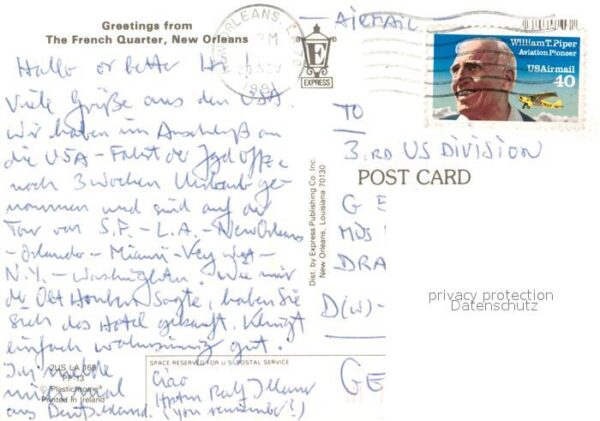 Greetings from
The French Quarter, New Orleans
Hallo or better Hi!
Viele Grüße aus den USA.
Wir haben im Anschluß an
die USA-Fahrt der Jgd Offze
noch 3 Wochen Urlaub ge-
nommen und sind auf der
Tour von S.F. - L.A. - New Orleans
- Orlando - Miami - Key West -
N.Y. - Washington. Wie mir
der Olt sagte, haben Sie
sich das Hotel gekauft. Klingt
einfach wahnsinnig gut.
Ich melde
mich mal
aus Deutschland. (you remember?)
ciao
Hptm Ralf
2US LA 169
PP 13
© Plastichrome®
Printed in Ireland
SPACE RESERVED FOR U.S. POSTAL SERVICE.
Dist. by Express Publishing Co. Inc.
New Orleans, Louisiana 70130
E
EXPRESS
NEW ORLEANS, LA
AIRMAIL
William T. Piper
Aviation Pioneer
USAirmail
40
TO
3.RD US DIVISION
POST CARD
GE
MJS
DRA
D(W)-
GE
privacy protection
Datenschutz